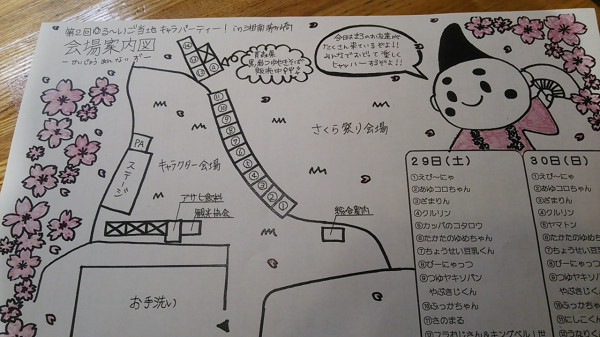 第2回ゆる〜いご当地キャラパーティー! in 湘南茅ヶ崎
会場案内図
ーかいじょうあんないずー
今日は35のお友達が
たくさん来ているぞよ!!
みんなでおどって楽しく
ヒャッハーするぞよ!!
青森県
黒石つゆやきそば
販売中!!
⑭
⑬
⑫
⑪
⑩
⑨
⑧
⑦
⑥
⑤
④
③
②
①
さくら祭り会場
キャラクター会場
PA
ステージ
アサヒ飲料
観光協会
総合案内
お手洗い
29日(土)
①えび〜にゃ
②あゆコロちゃん
③ざまりん
④クルリン
⑤カッパのコタロウ
⑥たかたのゆめちゃん
⑦ちょうせい豆乳くん
⑧ぴーにゃっつ
⑨つゆヤキソバン
やぶきじくん
⑩ふっかちゃん
⑪さのまる
⑫フラおじさん&キングベル1世
30日(日)
①えび〜にゃ
②あゆコロちゃん
③ざまりん
④クルリン
⑤ヤマトン
⑥たかたのゆめ
⑦ちょうせい豆
⑧ぴーにゃっつ
⑨つゆヤキソ
やぶきじ
⑩ふっかち
⑪にしこく
⑫うなりく